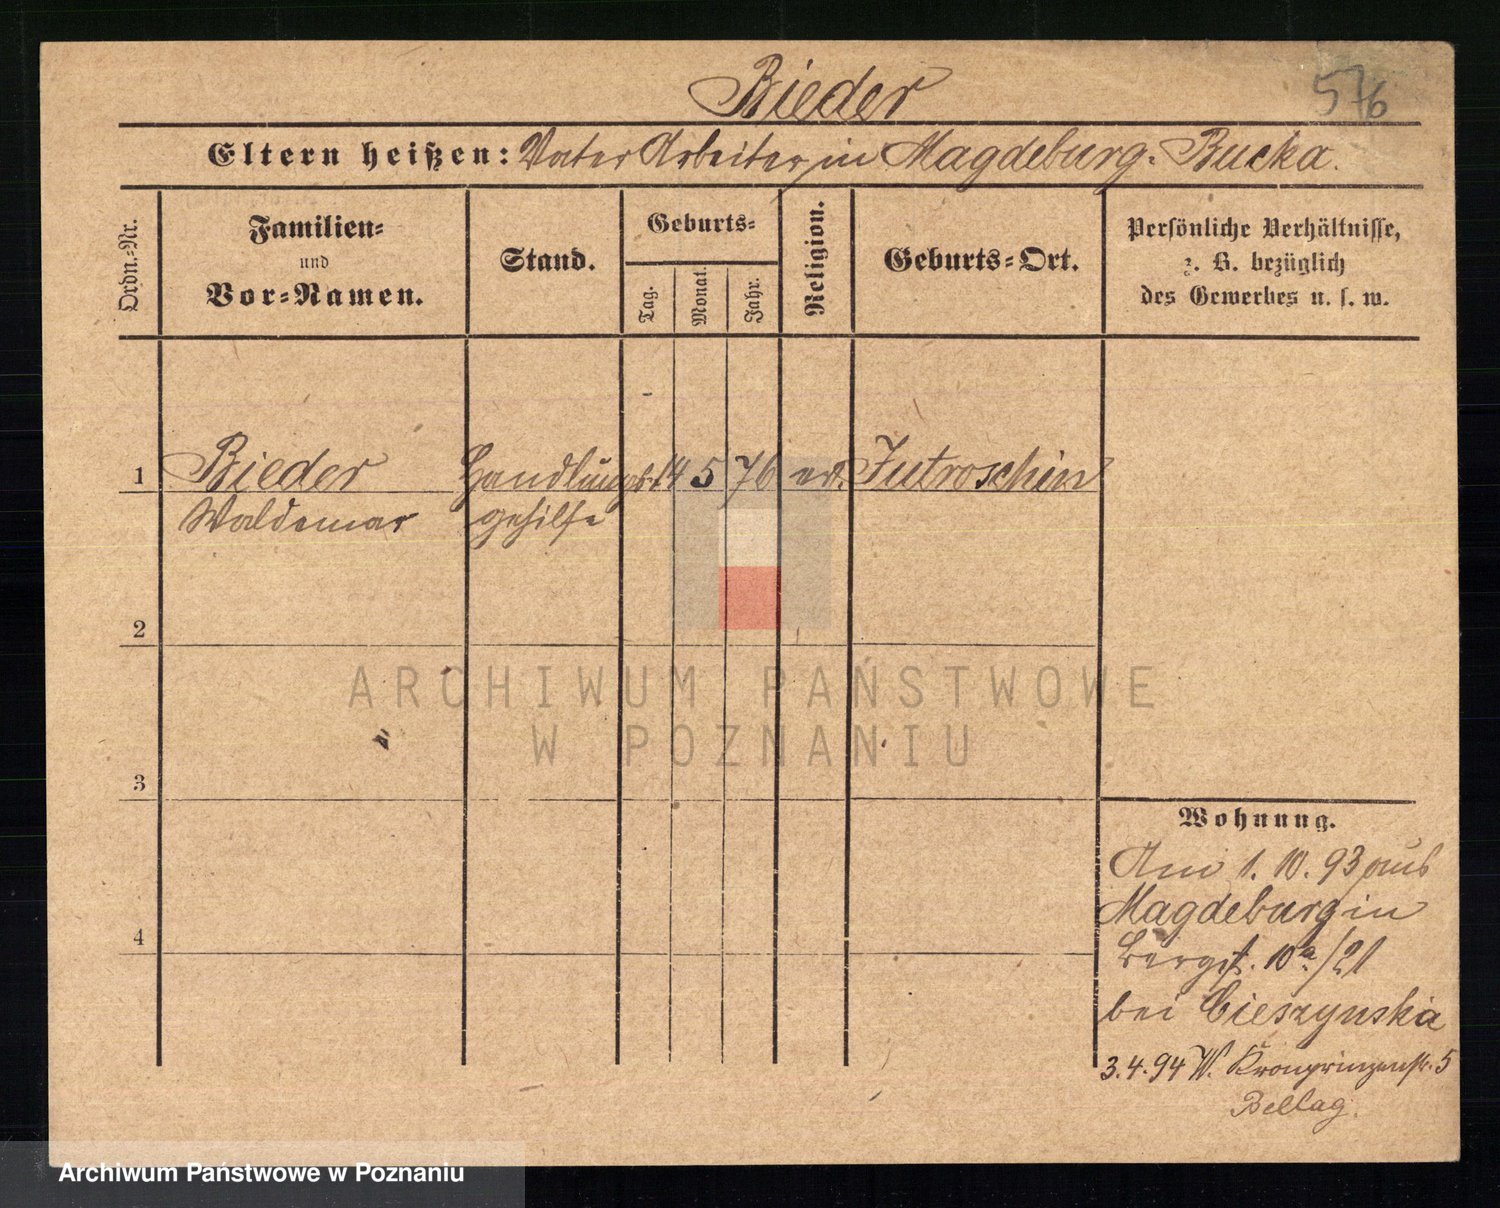 Rieder
576
Eltern heißen: Vater Arbeiter in Magdeburg-Bucka.
Ordn.-Nr.
Familien-
und
Vor-Namen.
Stand.
Geburts-
Tag.
Monat.
Jahr.
Religion.
Geburts-Ort.
Persönliche Verhältnisse,
z. B. bezüglich
des Gewerbes u. s. w.
1 Rieder Handlungs- 14 5 76 ev. Jutroschin
Waldemar gehilfe
2
3
4
Wohnung.
Am 1. 10. 93 aus
Magdeburg in
Bergst. 10a/21
bei Cieszynska
3.4.94 W. Kronprinzenstr. 5
Bellag.
ARCHIWUM PAŃSTWOWE
W POZNANIU
Archiwum Państwowe w Poznaniu